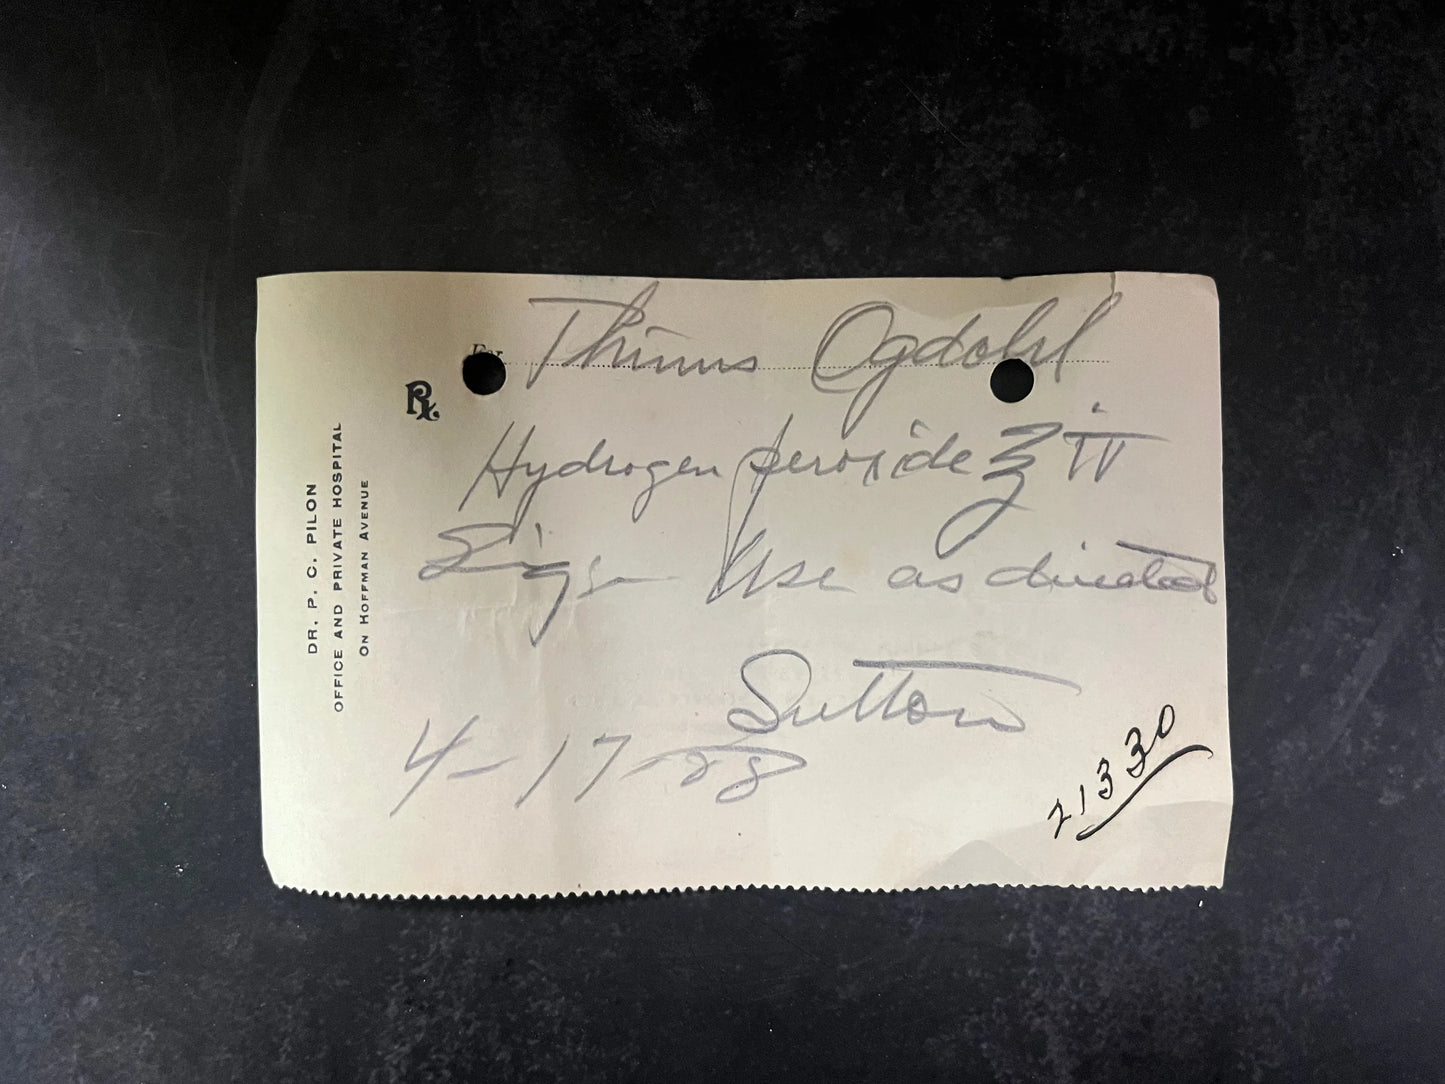 For Thinus Ogdahl
Rx
Hydrogen peroxide ℥ iv
Sig: Use as directed
Sutton
4-17-28
21330
DR. P. C. PILON
OFFICE AND PRIVATE HOSPITAL
ON HOFFMAN AVENUE